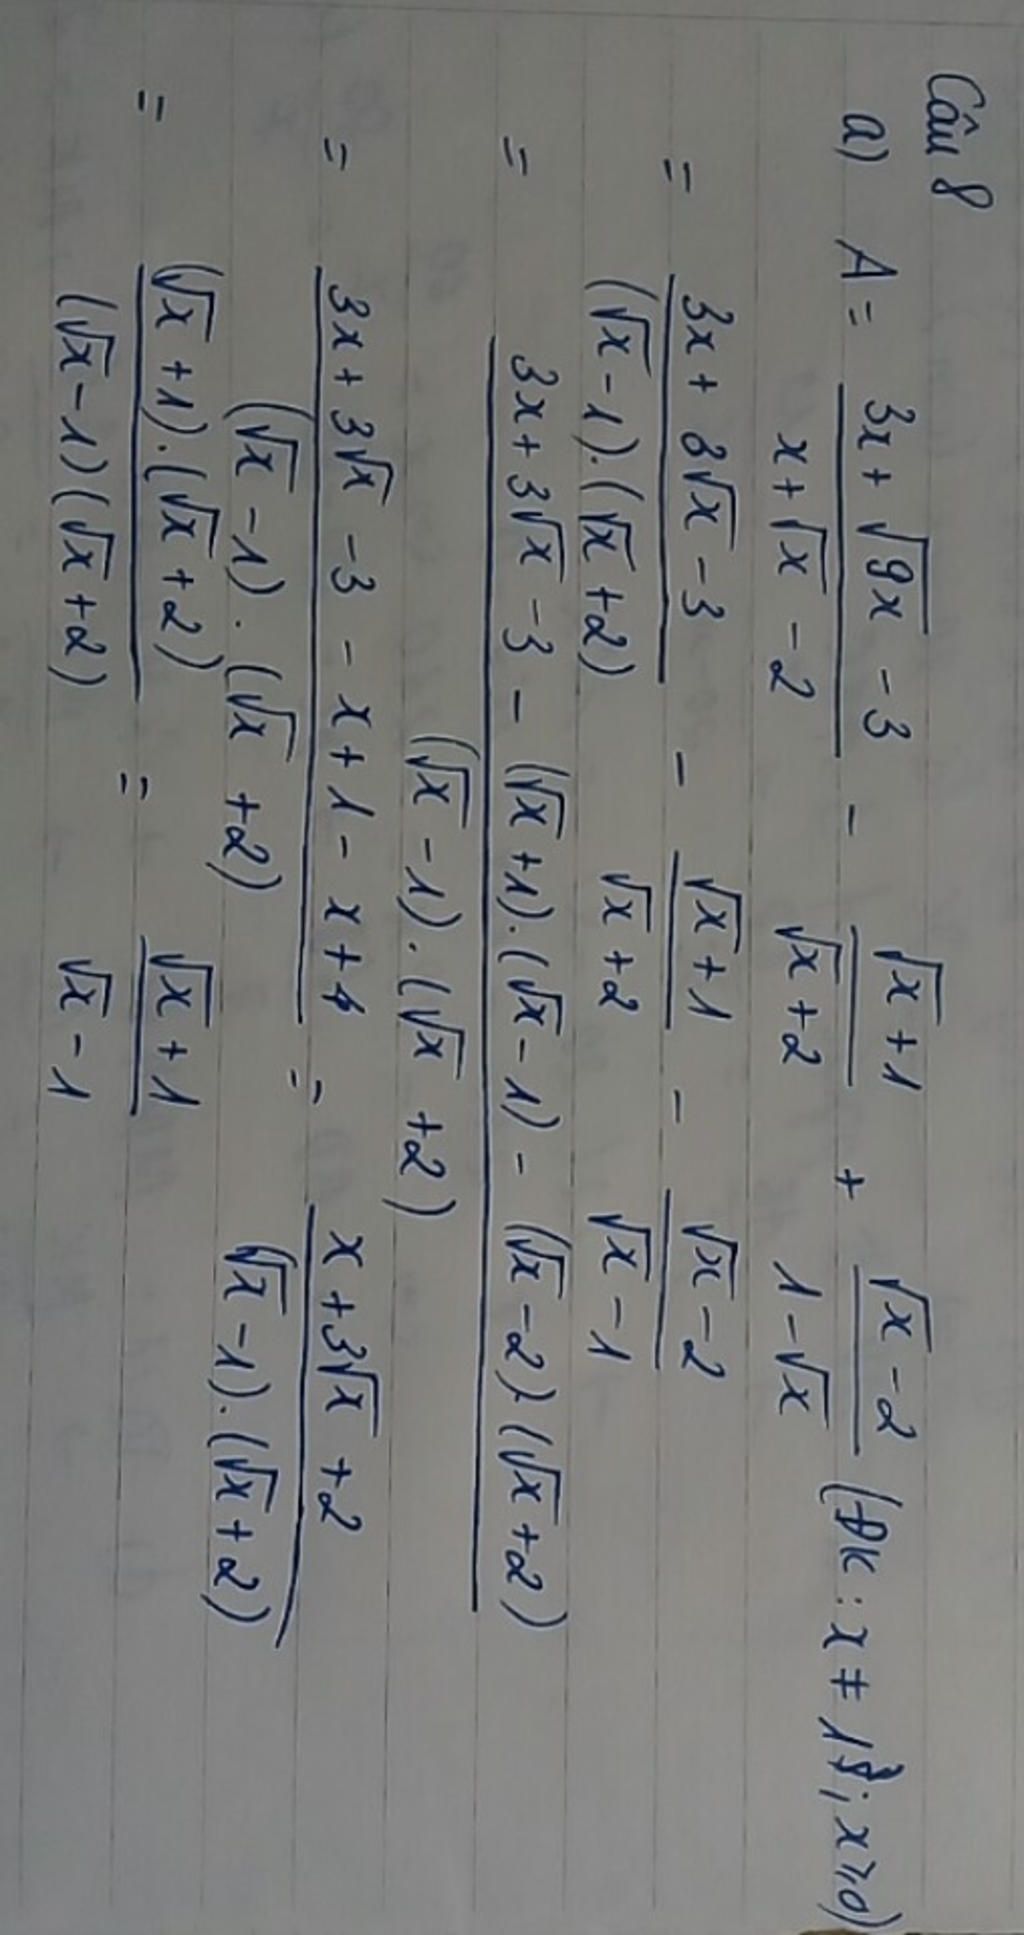 Câu 8
a) A = \frac{3x + \sqrt{9x} - 3}{x + \sqrt{x} - 2} - \frac{\sqrt{x} + 1}{\sqrt{x} + 2} + \frac{\sqrt{x} - 2}{1 - \sqrt{x}} (ĐK: x ≠ 1; x ≥ 0)
= \frac{3x + 3\sqrt{x} - 3}{(\sqrt{x} - 1).(\sqrt{x} + 2)} - \frac{\sqrt{x} + 1}{\sqrt{x} + 2} - \frac{\sqrt{x} - 2}{\sqrt{x} - 1}
= \frac{3x + 3\sqrt{x} - 3 - (\sqrt{x} + 1).(\sqrt{x} - 1) - (\sqrt{x} - 2)(\sqrt{x} + 2)}{(\sqrt{x} - 1).(\sqrt{x} + 2)}
= \frac{3x + 3\sqrt{x} - 3 - x + 1 - x + 4}{(\sqrt{x} - 1).(\sqrt{x} + 2)} = \frac{x + 3\sqrt{x} + 2}{(\sqrt{x} - 1).(\sqrt{x} + 2)}
= \frac{(\sqrt{x} + 1).(\sqrt{x} + 2)}{(\sqrt{x} - 1)(\sqrt{x} + 2)} = \frac{\sqrt{x} + 1}{\sqrt{x} - 1}